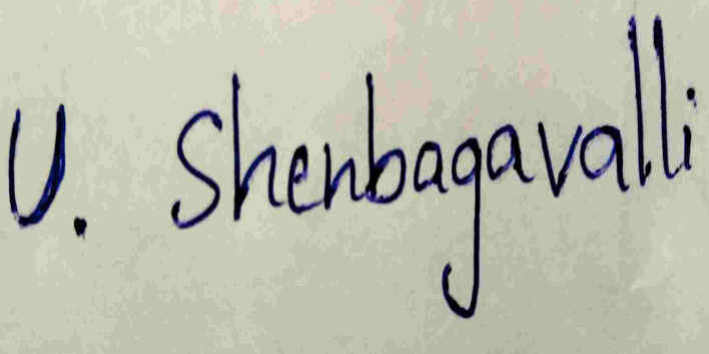 U. Shenbagavalli